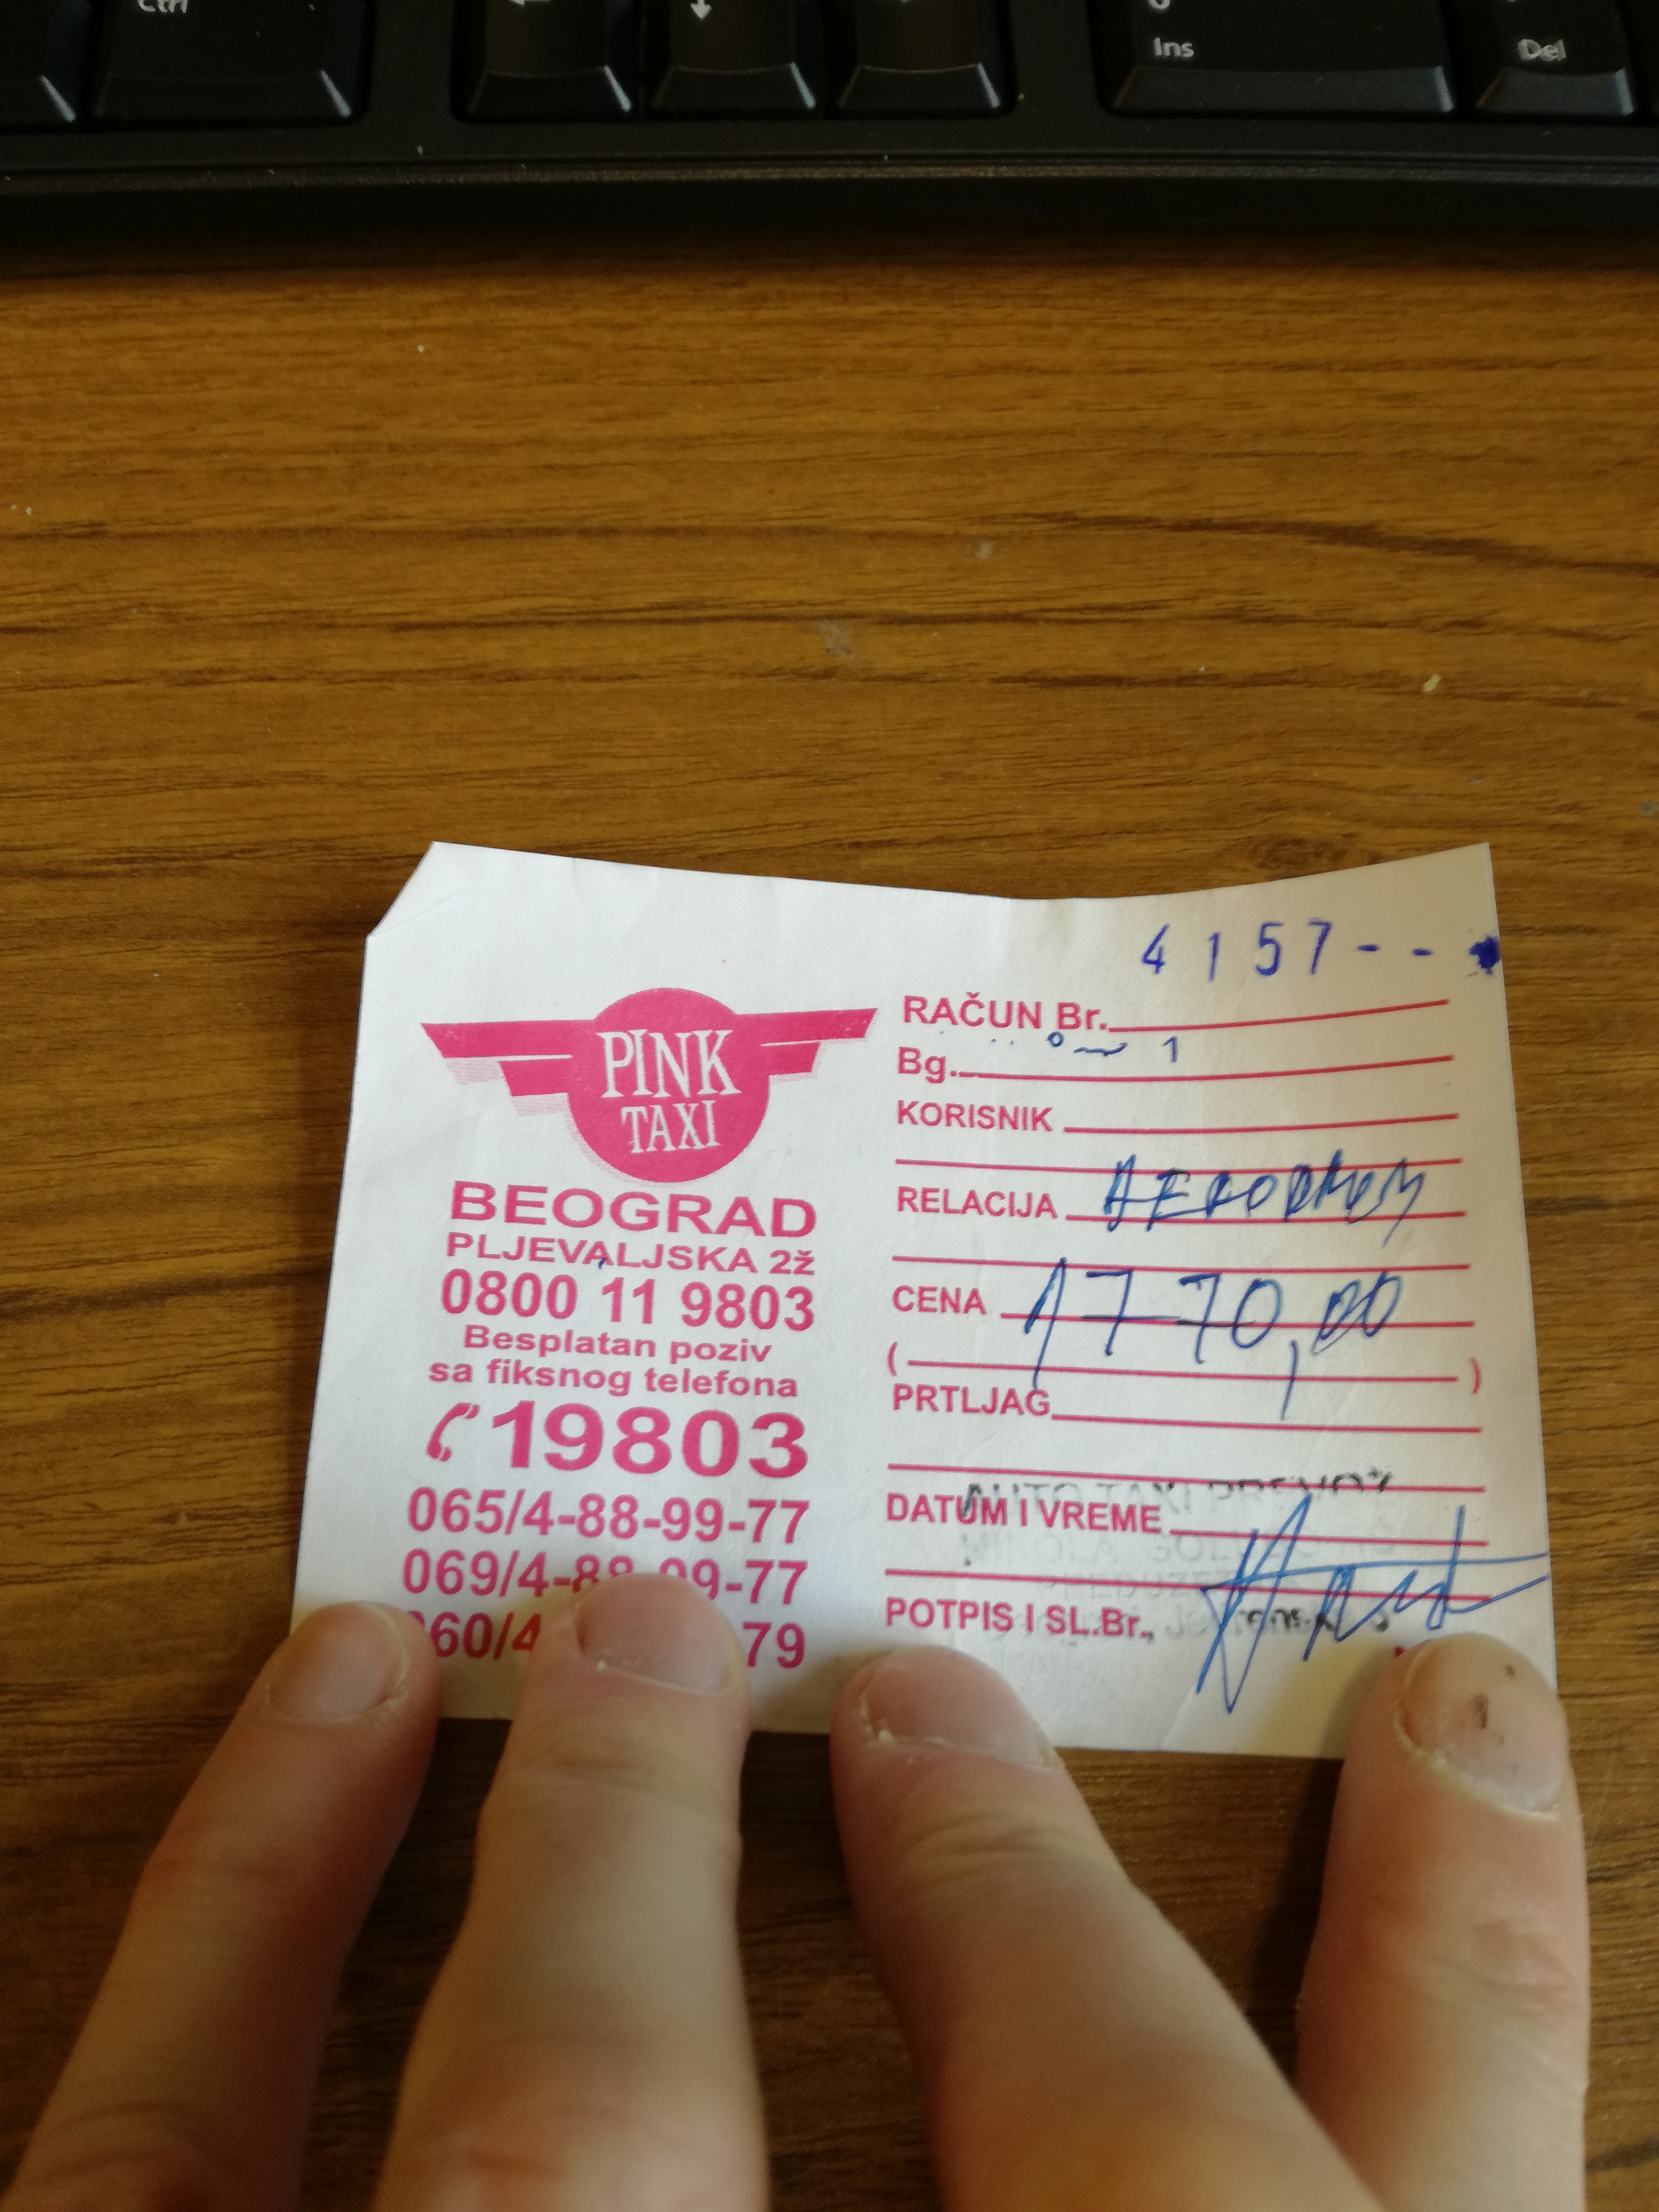 Ctrl
Ins
Del
PINK
TAXI
BEOGRAD
PLJEVALJSKA 2ž
0800 11 9803
Besplatan poziv
sa fiksnog telefona
19803
065/4-88-99-77
069/4-88-99-77
060/4 79
4157--
RAČUN Br.
Bg. 1
KORISNIK
RELACIJA AERODROM
CENA 1770,00
( )
PRTLJAG
AUTO TAXI PREVOZ
DATUM I VREME
POTPIS I SL.Br.